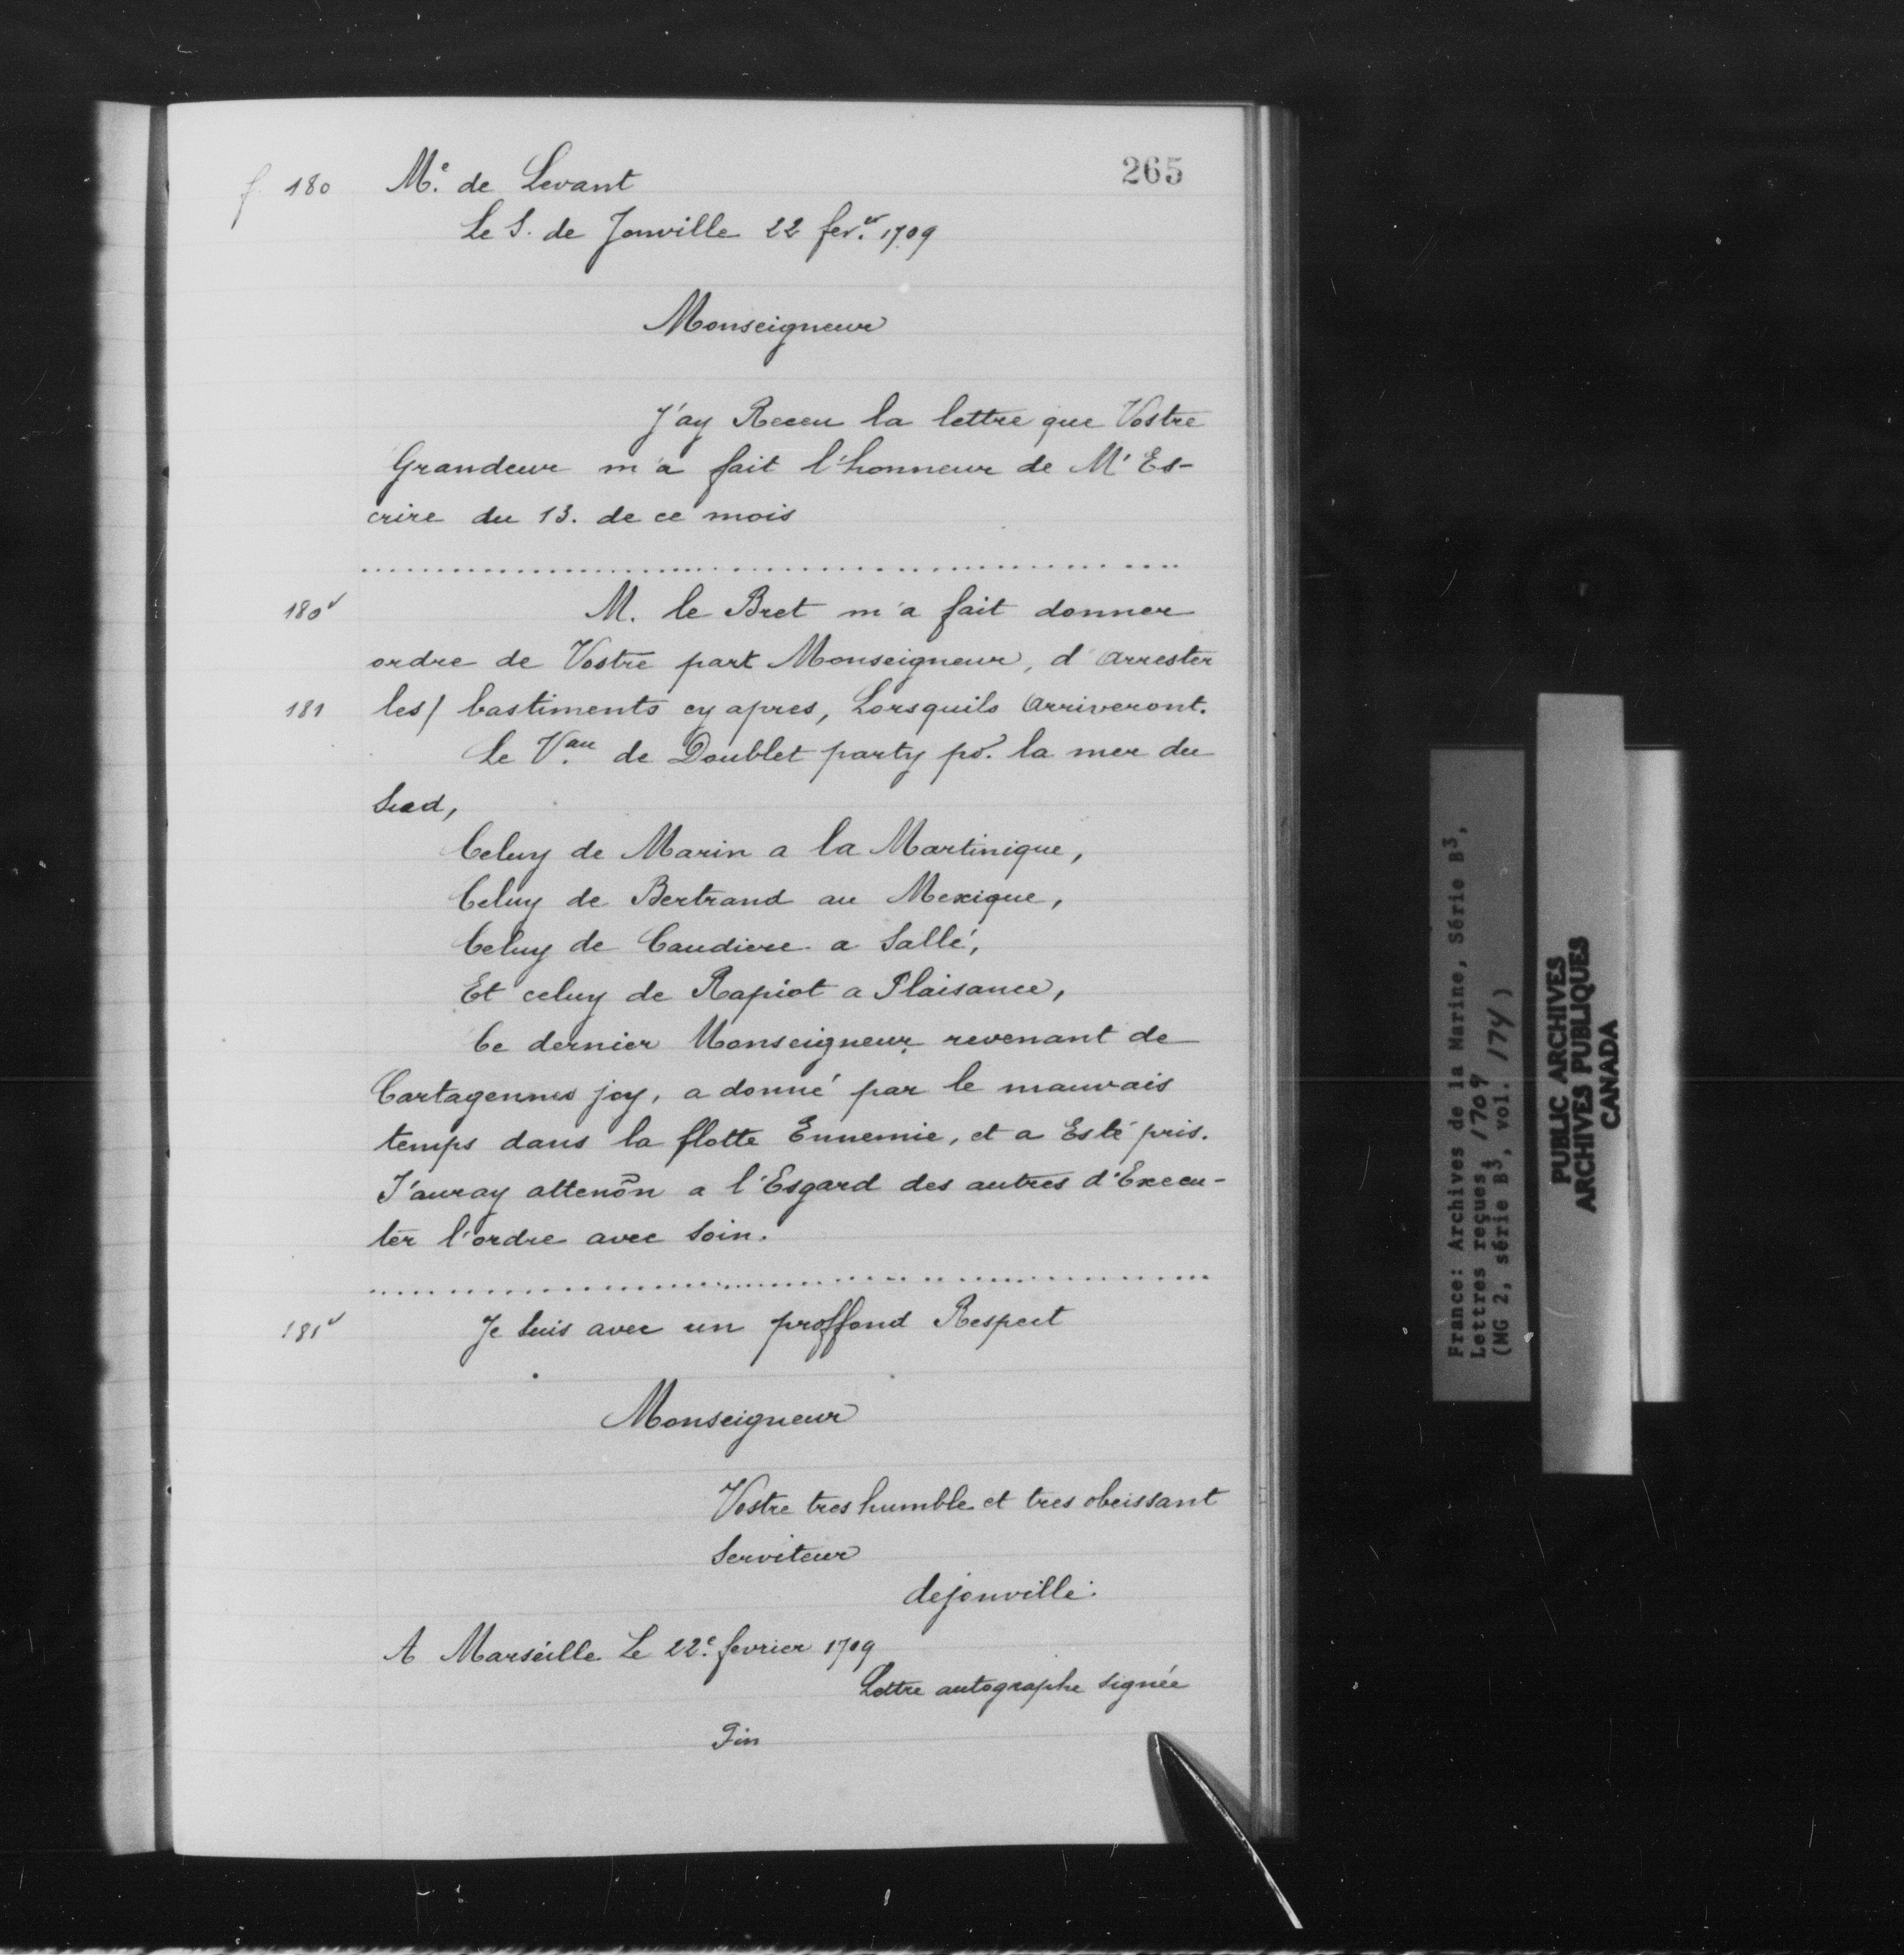 265
f. 180 M.e de Levant
Le S. de Jonville 22 fev.er 1709
Monseigneur
J'ay Receu la lettre que Vostre
Grandeur m'a fait l'honneur de M'Es-
crire du 13. de ce mois
180v M. le Bret m'a fait donner
ordre de Vostre part Monseigneur, d'arrester
181 les/ bastiments cy apres, Lorsquils arriveront.
Le V.au de Doublet party po.r la mer du
Sud,
Celuy de Marin a la Martinique,
Celuy de Bertrand au Mexique,
Celuy de Caudiere a Sallé,
Et celuy de Rapiot a Plaisance,
Ce dernier Monseigneur revenant de
Cartagennes joy, a donné par le mauvais
temps dans la flotte Ennemie, et a Esté pris.
J'auray attenõn a l'Esgard des autres d'Execu-
ter l'ordre avec soin.
181v Je suis avec un proffond Respect
Monseigneur
Vostre tres humble et tres obeissant
Serviteur
dejonville.
A Marseille Le 22.e fevrier 1709
Lettre autographe signée
Fin
France: Archives de la Marine, Série B3,
Lettres reçues, 1709
(MG 2, série B3, vol. 174)
PUBLIC ARCHIVES
ARCHIVES PUBLIQUES
CANADA